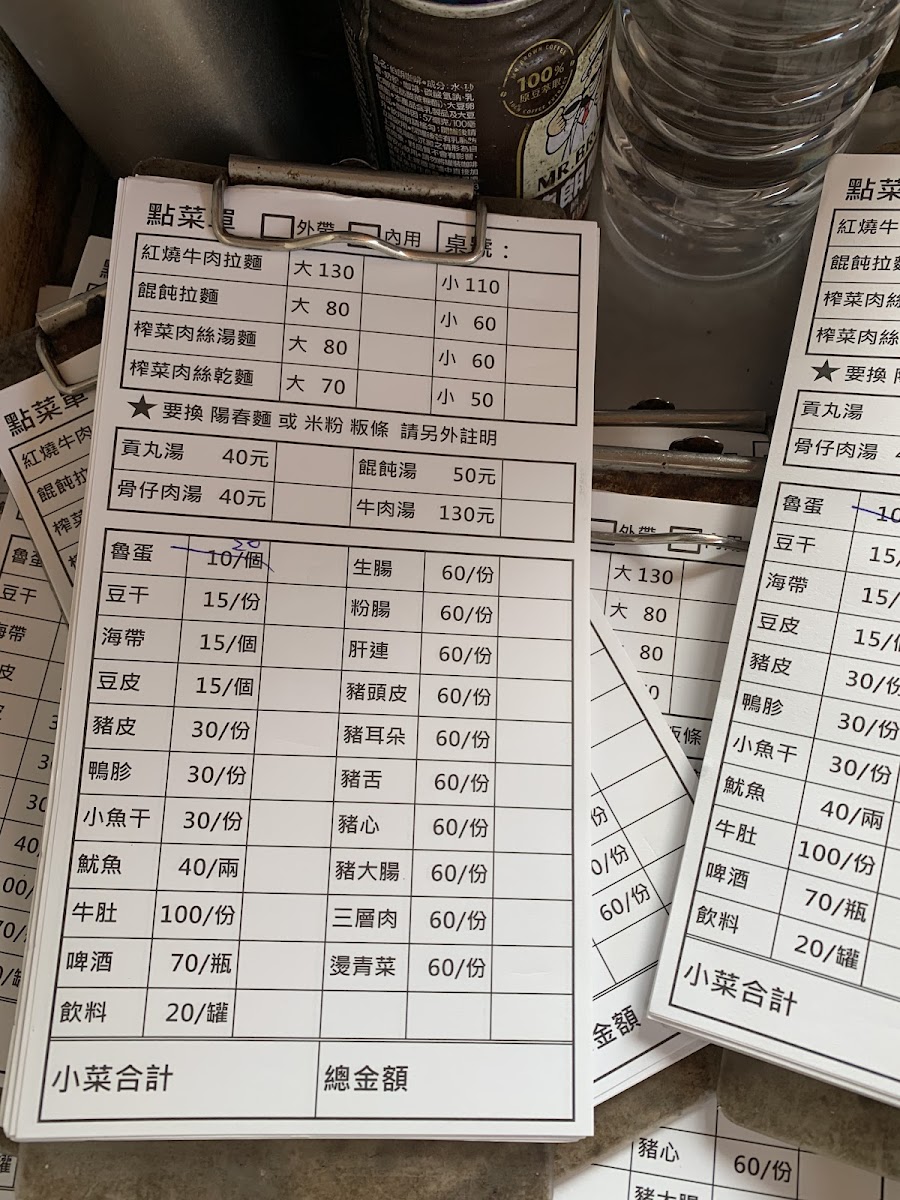 名:伯朗咖啡●成分:水、砂
100%
原豆萃取
MR. BR
點菜單 □外帶 □內用 桌號：
紅燒牛肉拉麵 大 130 小 110
餛飩拉麵 大 80 小 60
榨菜肉絲湯麵 大 80 小 60
榨菜肉絲乾麵 大 70 小 50
★ 要換 陽春麵 或 米粉 粄條 請另外註明
貢丸湯 40元 餛飩湯 50元
骨仔肉湯 40元 牛肉湯 130元
魯蛋 10/個 20 生腸 60/份
豆干 15/份 粉腸 60/份
海帶 15/個 肝連 60/份
豆皮 15/個 豬頭皮 60/份
豬皮 30/份 豬耳朵 60/份
鴨胗 30/份 豬舌 60/份
小魚干 30/份 豬心 60/份
魷魚 40/兩 豬大腸 60/份
牛肚 100/份 三層肉 60/份
啤酒 70/瓶 燙青菜 60/份
飲料 20/罐
小菜合計 總金額
點菜單
紅燒牛肉
餛飩
榨菜
魯蛋
豆干
海帶
皮
外帶 內用
大 130
大 80
80
粄條
0/份
60/份
金額
豬心 60/份
豬大腸
點菜
紅燒牛
餛飩拉
榨菜肉絲
榨菜肉絲
★ 要換
貢丸湯
骨仔肉湯
魯蛋 10
豆干 15/
海帶 15/
豆皮 15/
豬皮 30/份
鴨胗 30/份
小魚干 30/份
魷魚 40/兩
牛肚 100/份
啤酒 70/瓶
飲料 20/罐
小菜合計